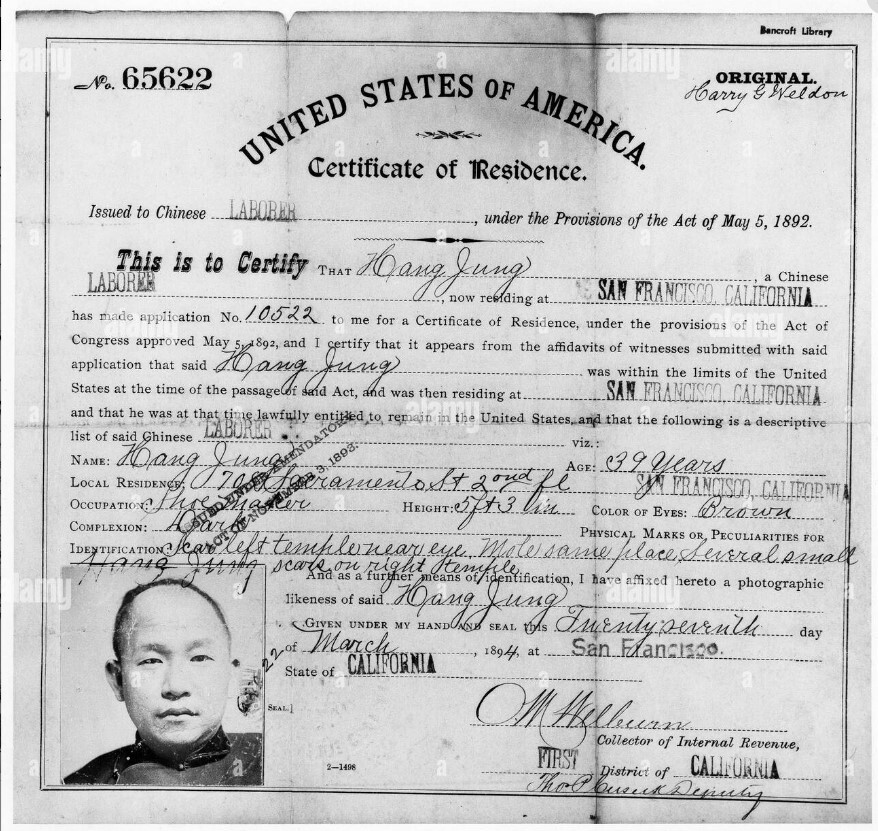 Bancroft Library
No. 65622
ORIGINAL.
Harry G Weldon
UNITED STATES OF AMERICA.
Certificate of Residence.
Issued to Chinese LABORER, under the Provisions of the Act of May 5, 1892.
This is to Certify THAT Hang Jung, a Chinese
LABORER, now residing at SAN FRANCISCO, CALIFORNIA
has made application No. 10522 to me for a Certificate of Residence, under the provisions of the Act of
Congress approved May 5, 1892, and I certify that it appears from the affidavits of witnesses submitted with said
application that said Hang Jung was within the limits of the United
States at the time of the passage of said Act, and was then residing at SAN FRANCISCO, CALIFORNIA
and that he was at that time lawfully entitled to remain in the United States, and that the following is a descriptive
list of said Chinese LABORER viz.:
NAME: Hang Jung AGE: 39 Years
LOCAL RESIDENCE: Sacramento St 2ond fl SAN FRANCISCO, CALIFORNIA
OCCUPATION: Shoe maker HEIGHT: 5 ft 3 in COLOR OF EYES: Brown
COMPLEXION: PHYSICAL MARKS OR PECULIARITIES FOR
IDENTIFICATION: Scar left temple near eye. Mole same place, Several small
scars on right temple
ISSUED UNDER AMENDATORY
ACT OF NOVEMBER 3, 1893.
Hang Jung
And as a further means of identification, I have affixed hereto a photographic
likeness of said Hang Jung
GIVEN UNDER MY HAND AND SEAL this Twenty seventh day
of March, 1894, at San Francisco.
State of CALIFORNIA
[SEAL.]
O M Welburn
Collector of Internal Revenue,
FIRST District of CALIFORNIA
Thos P Cusack Deputy
2—1498
alamy